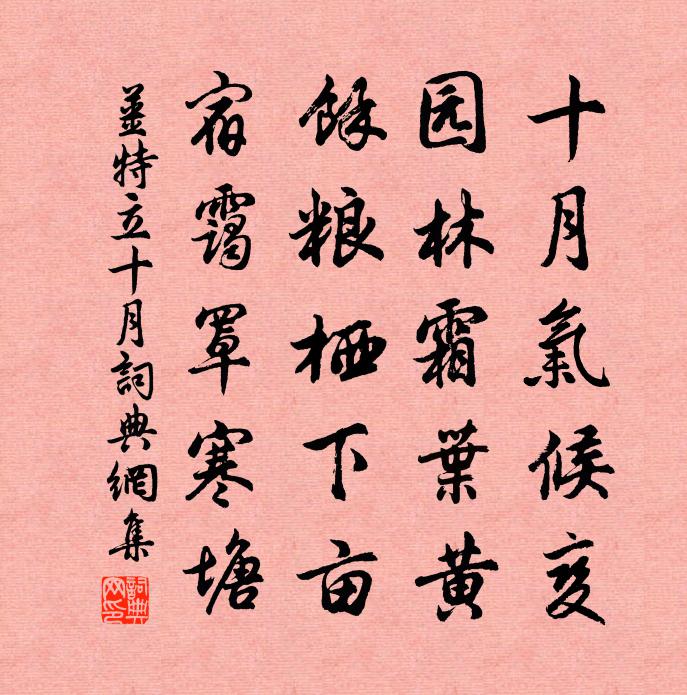 十月氣候变
园林霜葉黄
餘粮栖下亩
宿靄罩寒塘
姜特立十月詞典網集
詞典网印